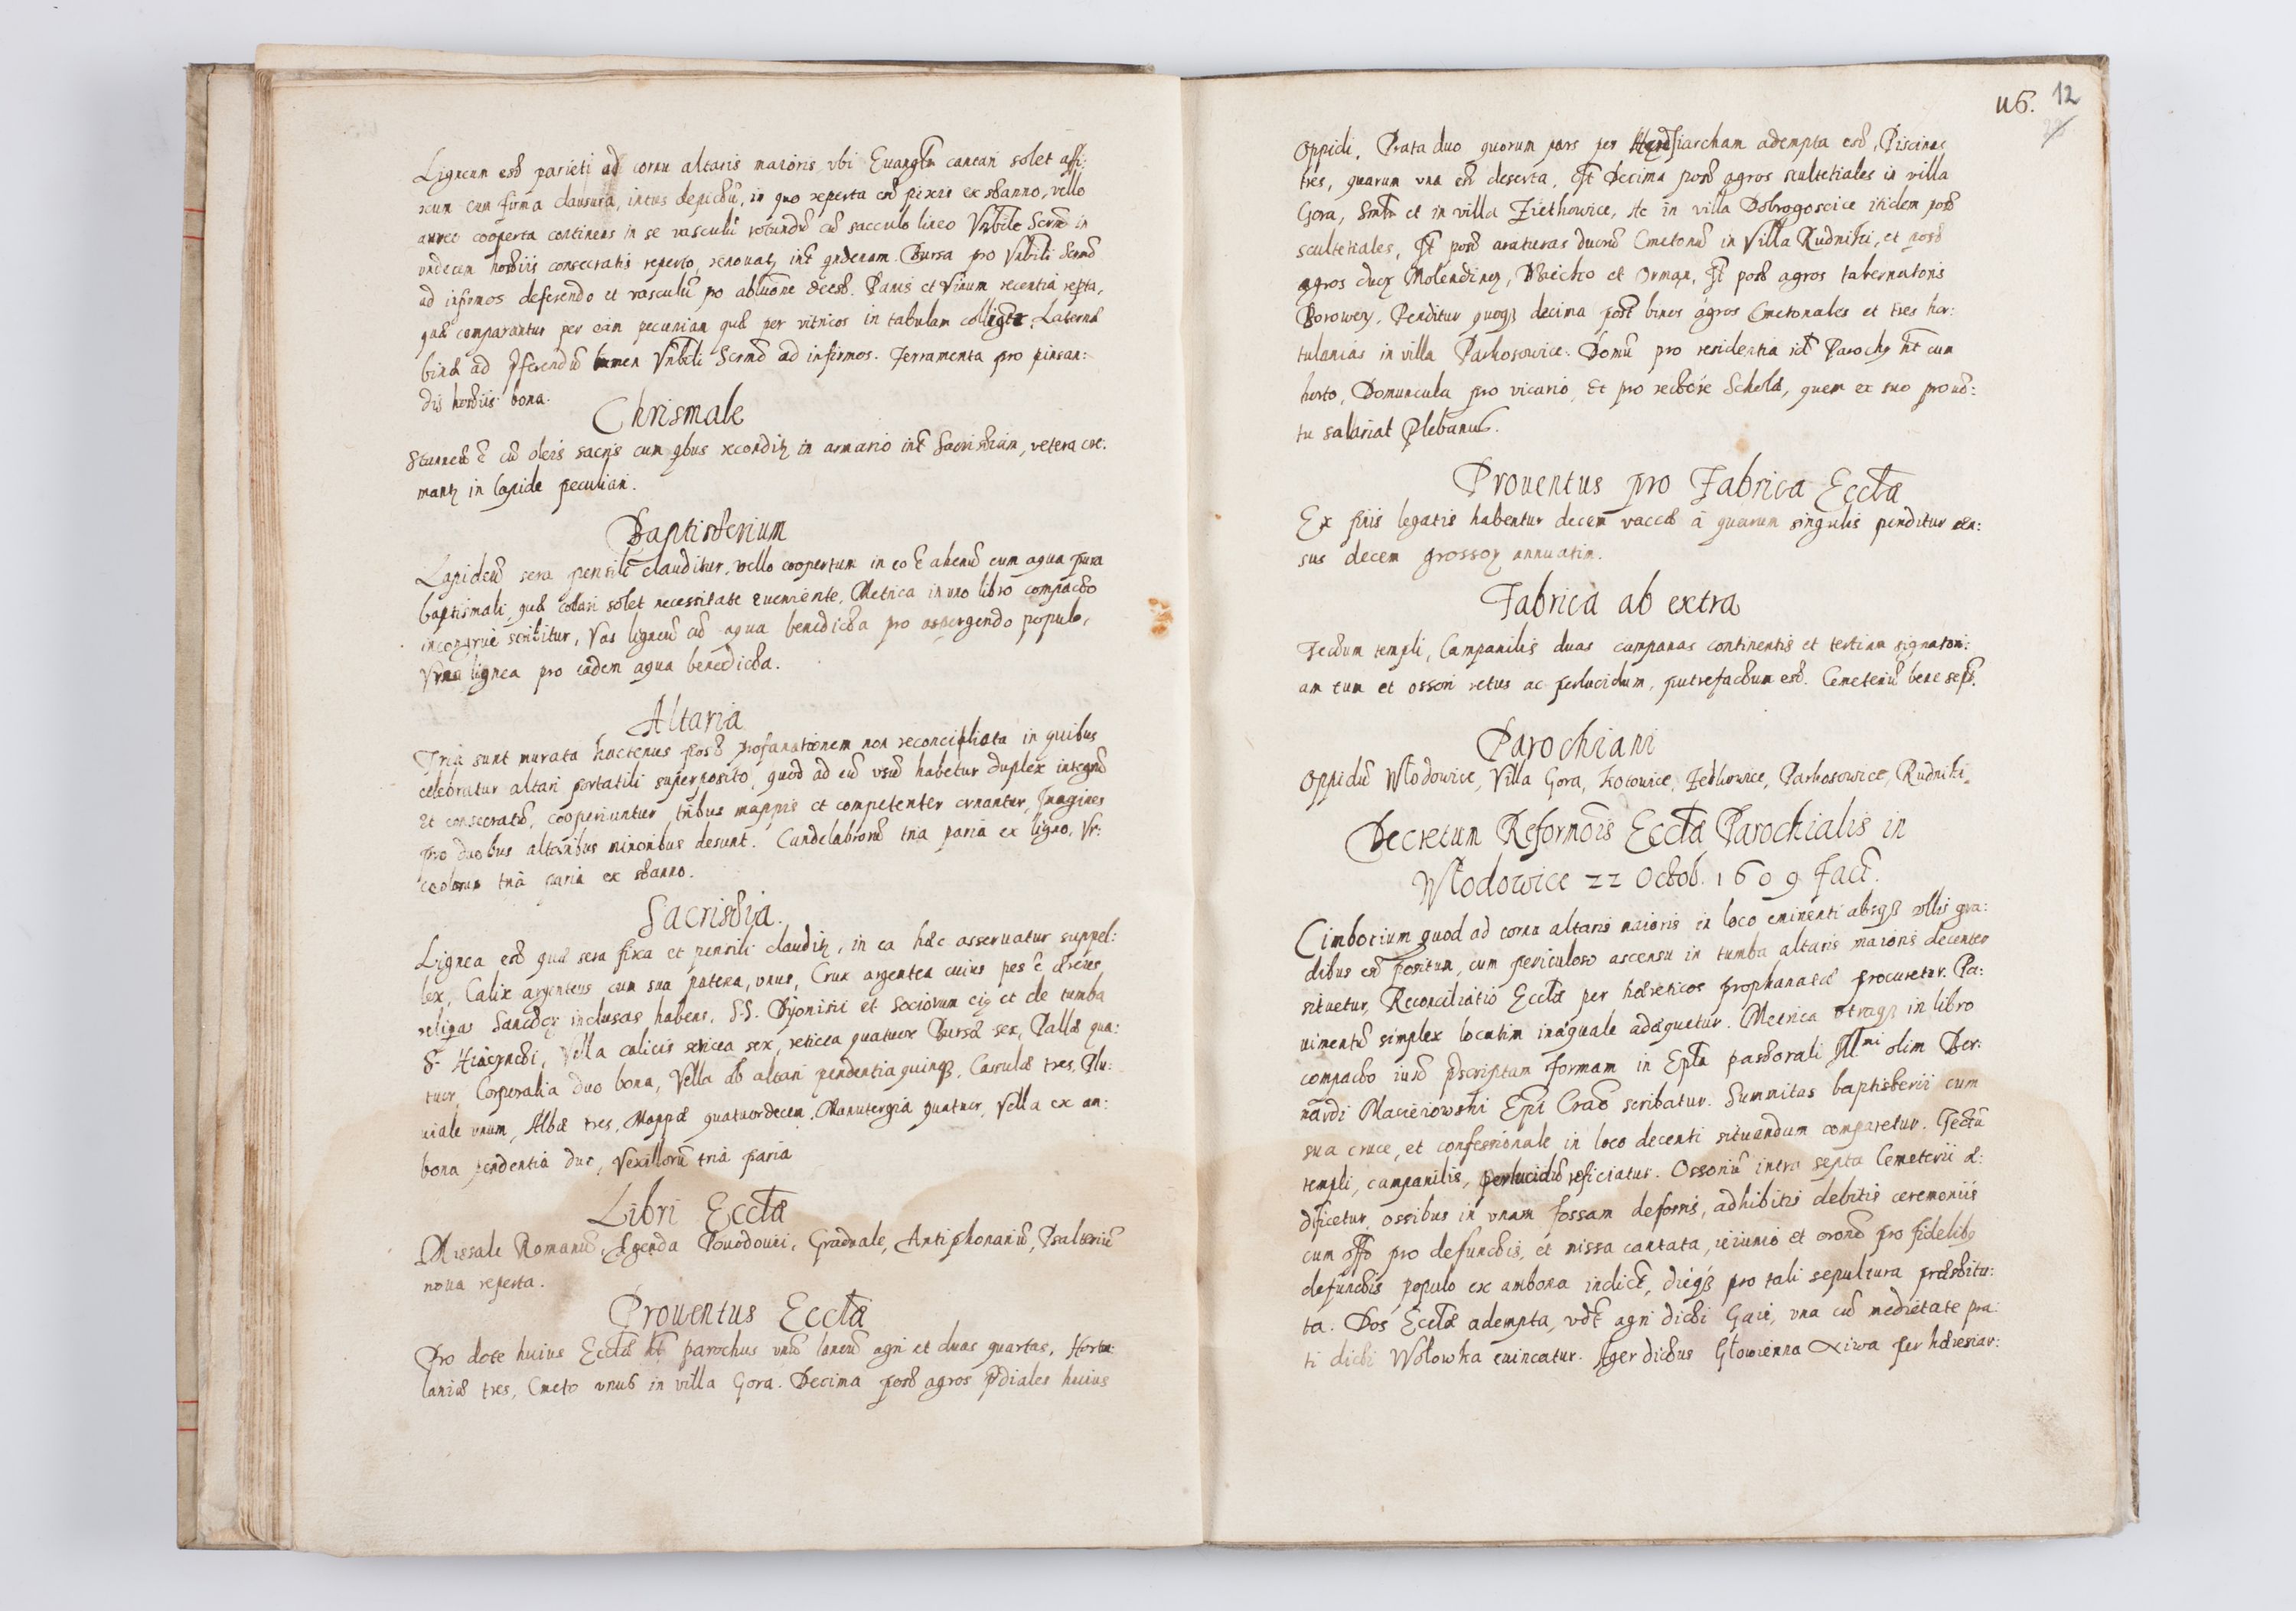 Ligneum est parieti ad cornu altaris maioris vbi Euanglm cantari solet affi:
xum cum firma clausura, intus depictũ, in quo reperta est pixis ex stanno, vello
aureo cooperta continens in se vasculũ rotundũ cũ sacculo lineo Vnbile Scrm̃ in
vndecim hostiis consecratis reperto, renouatʒ int̃ qndenam. Bursa pro Vnbili Scrmõ
ad infirmos deferendo et vasculũ po ablutõne deest. Panis et Vinum recentia repta,
quæ comparantur per eam pecuniam quæ per vitricos in tabulam colligitr. Laternæ
binæ ad pferendũ lumen Vnbili Scrmõ ad infirmos. Ferramenta pro pinsan:
dis hostiis bona.
Chrismale
Stanneũ ẽ cũ oleis sacris cum qbus recondiʒ in armario int̃ Sacristiam, vetera cre:
mantʒ in lapide peculiari.
Baptisterium
Lapideũ sera pensili clauditur, vello coopertum in eo ẽ ahenũ cum aqua pura
baptismali, quæ colari solet necessitate eueniente. Metrica in uno libro compacto
incongrue scribitur, Vas ligneũ cũ aqua benedicta pro aspergendo populo,
Vrna lignea pro eadem aqua benedicta.
Altaria
Tria sunt murata hactenus post profanationem non reconciliata in quibus
celebratur altari portatili superposito, quod ad eũ vsũ habetur duplex integrũ
et consecratũ, cooperiuntur tribus mappis et competenter ornantur, Imagines
pro duobus altaribus minoribus desunt. Candelabrorũ tria paria ex ligno, Vr:
ceolorum tria paria ex stanno.
Sacristia.
Lignea est quæ sera fixa et pensili claudiʒ, in ea hæc asseruatur suppel:
lex, Calix argenteus cum sua patena, vnus, Crux argentea cuius pes ẽ æreus
reliqas Sanctoʒ inclusas habens, S.S. Dyonisii et Sociorum eiʒ et de tumba
S. Hiacyncti, Vella calicis sericea sex, reticea quatuor Bursæ sex, Pallæ qua:
tuor, Corporalia duo bona, Vella ab altari pendentia quinqʒ, Casulæ tres, Plu:
uiale vnum, Albæ tres, Mappæ quatuordecim, Manutergia quatuor, Vella ex am:
bona pendentia duo, Vexillorũ tria paria
Libri Eccłæ
Missale Romanũ, Agenda Pouodouni, Graduale, Antiphonariũ, Psalteriũ
noua reperta.
Prouentus Eccłæ
Pro dote huius Eccłæ ht̃ parochus vnũ laneũ agri et duas quartas, Hortu:
laniæ tres, Cmeto vnus in villa Gora. Decima post agros pdiales huius
u6. 12
Oppidi. Prata duo quorum pars per Hæresiarcham adempta est, Piscinæ
tres, quarum vna est deserta, It̃ Decima post agros scultetiales in villa
Gora, Smłr et in villa Ziethowice, Ac in villa Dobrogoscice itidem post
scultetiales, It̃ post araturas duorũ Cmetonũ in Villa Rudniki, et post
agros duoʒ Molendinoʒ, Waicko et Orman, It̃ post agros tabernatoris
Borowey, Penditur quoqʒ decima post binos agros Cmetonales et tres hor:
tulanias in villa Parkosowice. Domũ pro residentia id Parochʒ ht̃ cum
horto, Domuncula pro vicario, Et pro rectore Scholæ, quem ex suo prouẽ:
tu salariat Plebanus.
Prouentus pro Fabrica Eccłæ
Ex piis legatis habentur decem vaccæ à quarum singulis penditur cen:
sus decem grossoʒ annuatim.
Fabrica ab extra
Tectum templi, Campanilis duas campanas continentis et tertiam signatori:
am tum et ossorii vetus ac perlucidum, putrefactum est. Cemeteriũ bene sept̃.
Parochiani
Oppidũ Włodowice, Villa Gora, Hocowice, Zedkowice, Parkosowice, Rudniki.
Decretum Reformõis Eccłæ Parochialis in
Włodowice 22 Octob. 1609 Fact̃.
Cimborium quod ad cornu altaris maioris in loco eminenti absqʒ vllis gra:
dibus est positum, cum periculoso ascensu in tumba altaris maioris decenter
situetur, Reconciliatio Eccłæ per hæreticos prophanatæ procuretur. Pa:
uimentũ simplex locatim inæquale adæquetur. Metrica vtraqʒ in libro
compacto iuxt̃ pscriptam formam in Epłã pastorali Ill.mi olim Ber:
nardi Macieiowski Epi Crac̃ scribatur. Summitas baptisterii cum
sua cruce, et confessionale in loco decenti situandum comparetur. Tectũ
templi, campanilis, perlucidũ reficiatur. Ossoriũ intra septa Cemeterii æ:
dificetur, ossibus in vnam fossam deforis, adhibitis debitis ceremoniis
cum offõ pro defunctis, et missa cantata, ieiunio et orõne pro fidelibʒ
defunctis populo ex ambona indict̃, dieqʒ pro tali sepultura præstitu:
ta. Dos Eccłæ adempta, vdt̃ agri dicti Gaie, vna cũ medietate pra:
ti dicti Wołowka euincatur. Ager dictus Głowienna Niwa per hæresiar: